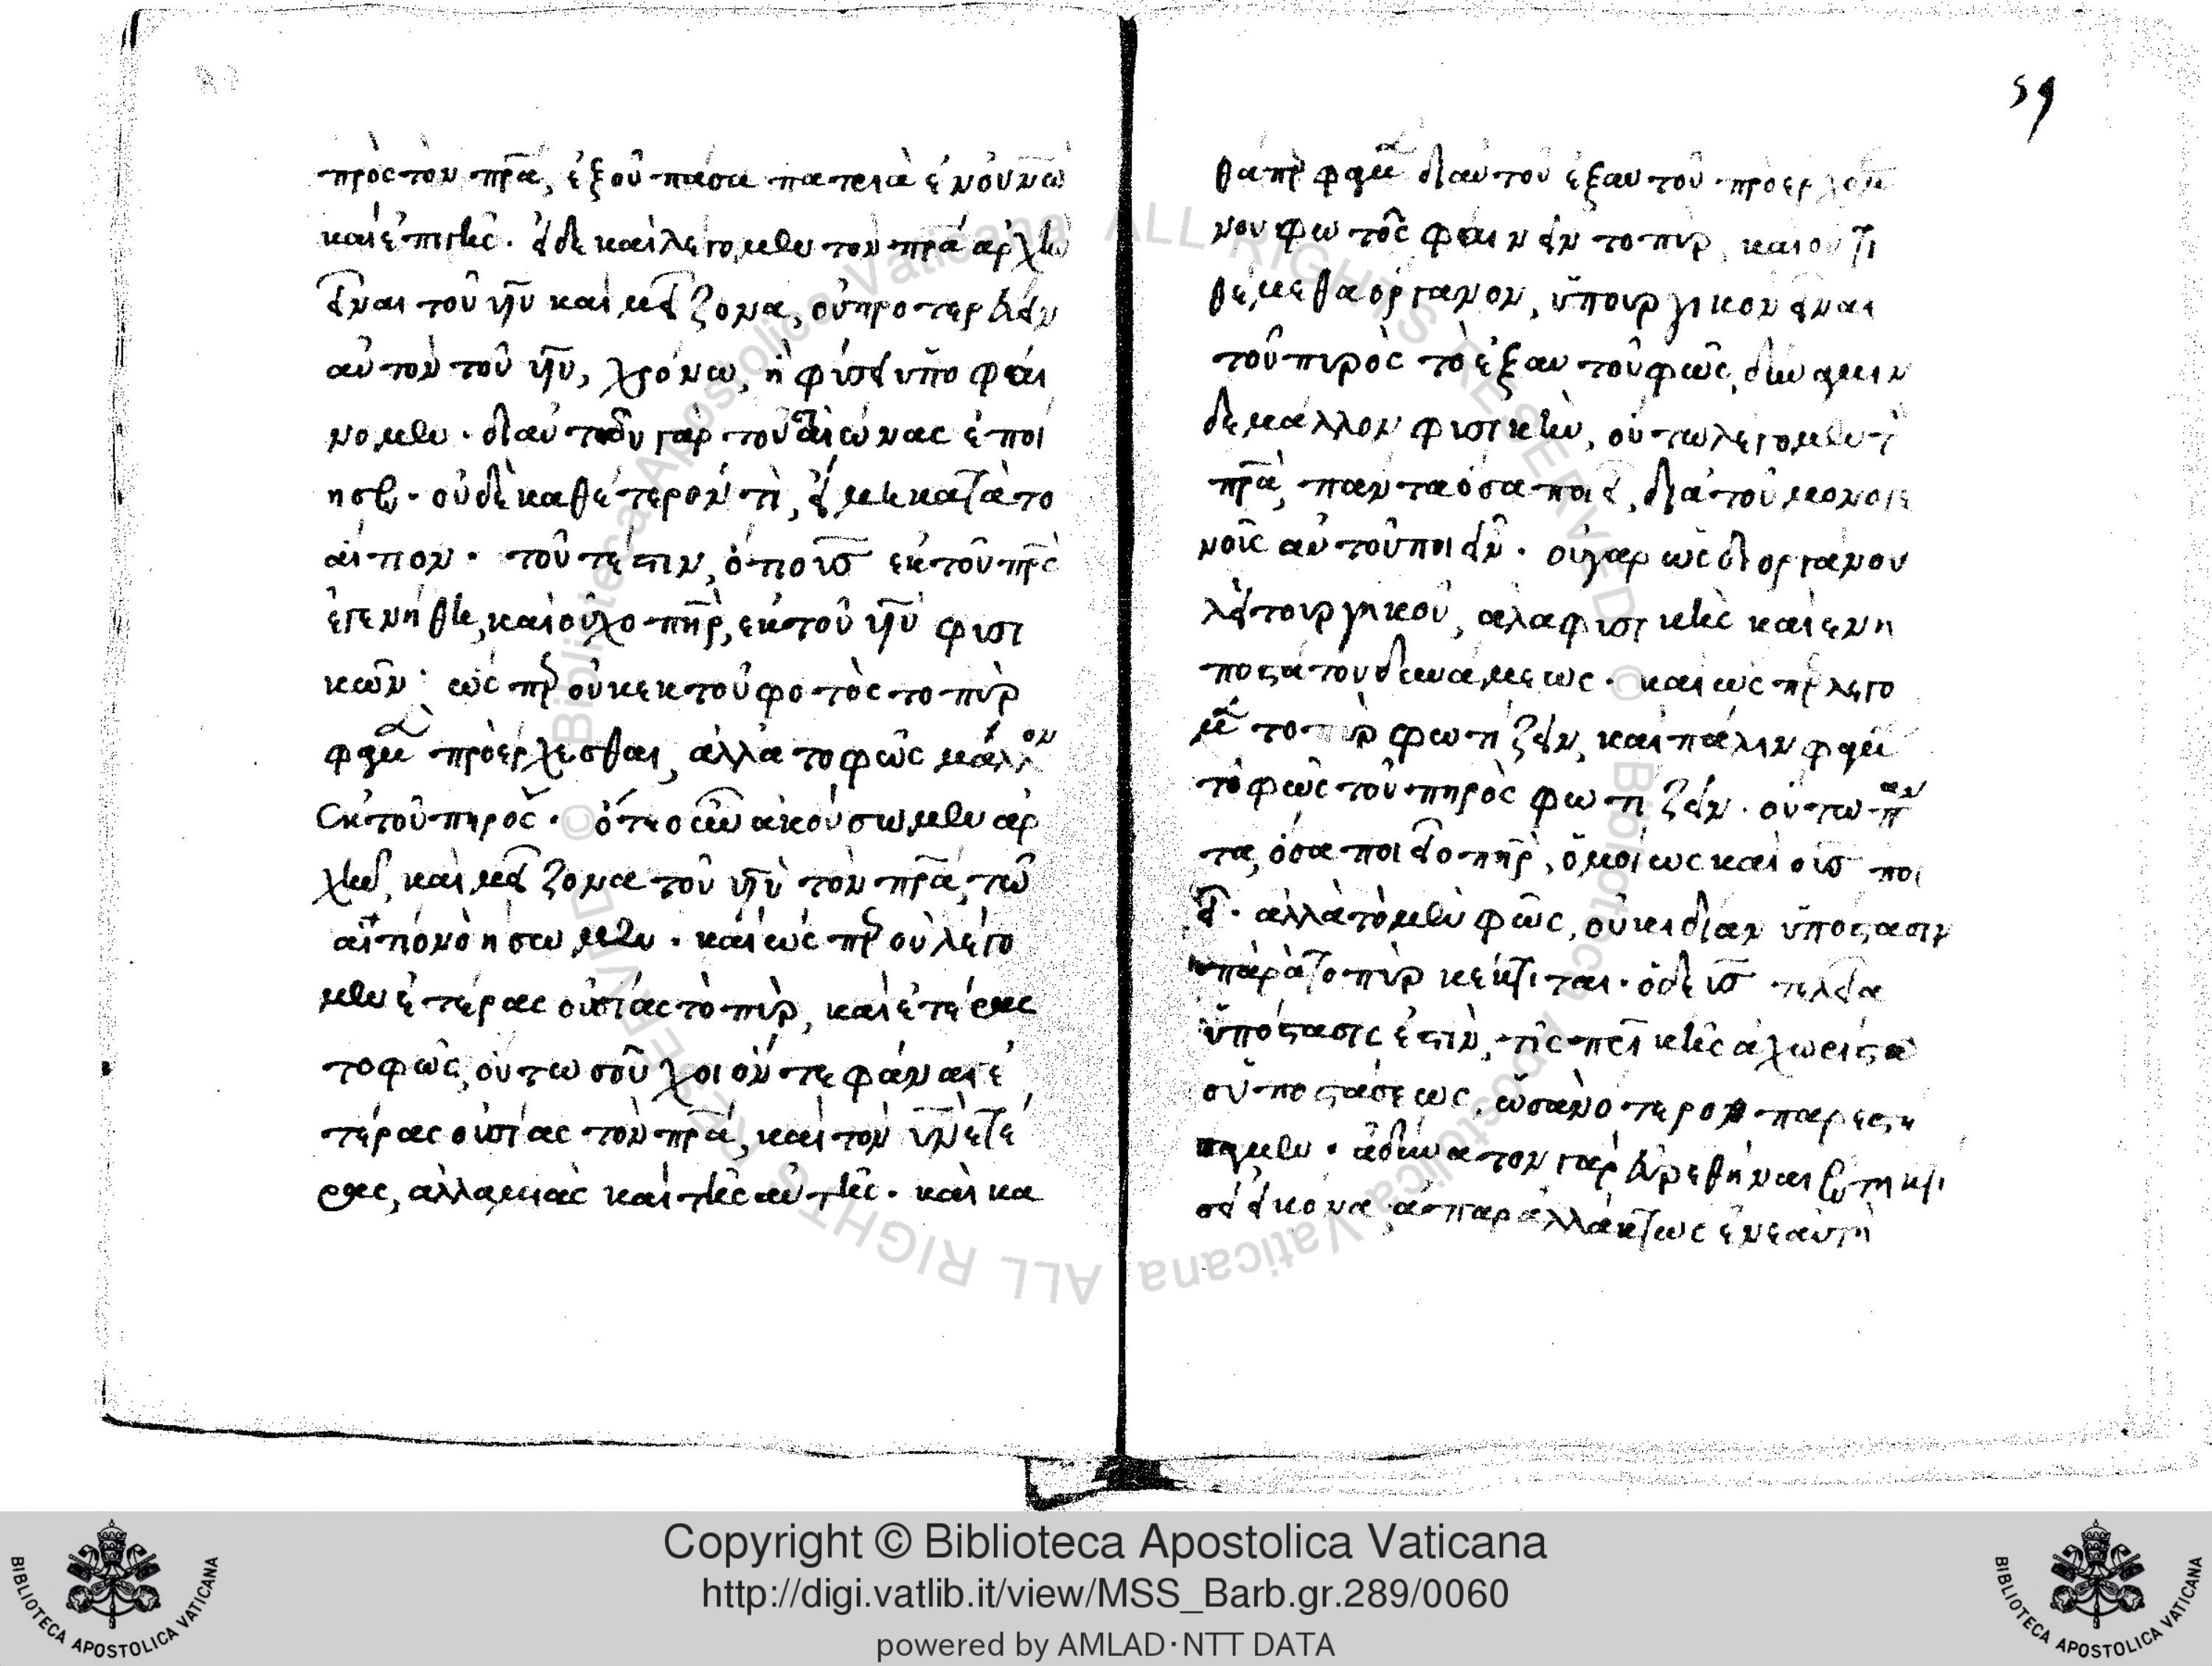 πρὸς τὸν πρ̅α, ἐξ οὗ πάσα πατριὰ ἐν οὐνω
καὶ ἐπὶ γῆς. εἰ δὲ καὶ λέγομεν τον πρ̅α ἀρχὴν
εἶναι τοῦ υἱ̅υ καὶ μείζονα, οὐ προτερεύειν
αὐτὸν τοῦ υἱ̅υ, χρόνω, ἢ φύσει ὑπο φαι
νομεν. δι αὐτοῦ γὰρ τοῦ αἰώνας ἐποί
ησεν. οὐδὲ καθέτερόν τι, εἰ μὴ κατὰ το
αἴτιον. τοῦτέστιν, ὅτι ο υ̅ς ἐκ τοῦ πρ̅ς
ἐγενήθη, καὶ οὐχ ο πη̅ρ, ἐκ τοῦ υἱ̅υ φισι
κῶν ὡς περ οὐκ εκ τοῦ φοτὸς το πῦρ
φαμὲ προέρχεσθαι, ἀλλὰ το φῶς μάλλον
εκ τοῦ πηρὸς. ὅτε οὖν ἀκούσωμεν ἀρ
χὴν, καὶ μείζονα τοῦ υἱ̅υ τὸν πρ̅α, τῶ
αἰτίο νοήσωμεν. καὶ ὡς περ οὐ λέγο
μεν ἑτέρας οὐσίας τὸ πῦρ, καὶ ἑτέρας
το φῶς, οὕτως οὐχ οἱόν τε φάναι ἑ
τέρας οὐσίας τὸν πρ̅α, καὶ τὸν υἱ̅ν ἑτέ
ρας, ἀλλα μιὰς καὶ τῆς αὐτῆς. καὶ κα
59
θάπερ φαμὲ δι αὐτοῦ ἐξ αυτοῦ προερχομε
νου φωτὸς φαίνειν το πῦρ, καὶ οὐ τι
θέμεθα ὄργανον, ὑπουργικὸν εἶναι
τοῦ πυρὸς τὸ ἐξ αυτοῦ φῶς, δύναμιν
δὲ μάλλον φισικὴν, οὕτω λέγομεν τ
πρ̅α, πάντα ὅσα ποιεῖ, διὰ τοῦ μονογε
νοῦς αὐτοῦ ποιεῖν. οὐχαρ ὡς δι οργάνου
λειτουργηκοῦ, ἀλα φισικῆς καὶ ενη
ποστάτου δυνάμεως. καὶ ὡς περ λέγο
μὲ το πῦρ φωτίζειν, καὶ πάλιν φαμὲ
τὸ φῶς τοῦ πηρὸς φωτίζειν. οὕτω παν
τα, ὅσα ποιεῖ ο πη̅ρ, ὁμοίως καὶ ο υ̅ς ποι
εῖ. ἀλλὰ τὸ μὲν φῶς, οὐκ ιδίαν ὑπόστασιν
παρὰ το πῦρ κέκτιται. ὁ δὲ υ̅ς τελεία
ὑπόστασις ἐστὶν, τῆς πρ̅ικῆς ἀχωρίστο
ς ὑποστάσεως, ὡς ἀνότερον παρεστή
σαμεν. ἀδύνατον γὰρ εὑρεθῆναι ἐν τη κτί
σει εἰκόνα, ἀπαραλλάκτως ἐν εαυτῆ
Copyright © Biblioteca Apostolica Vaticana
http://digi.vatlib.it/view/MSS_Barb.gr.289/0060
powered by AMLAD·NTT DATA